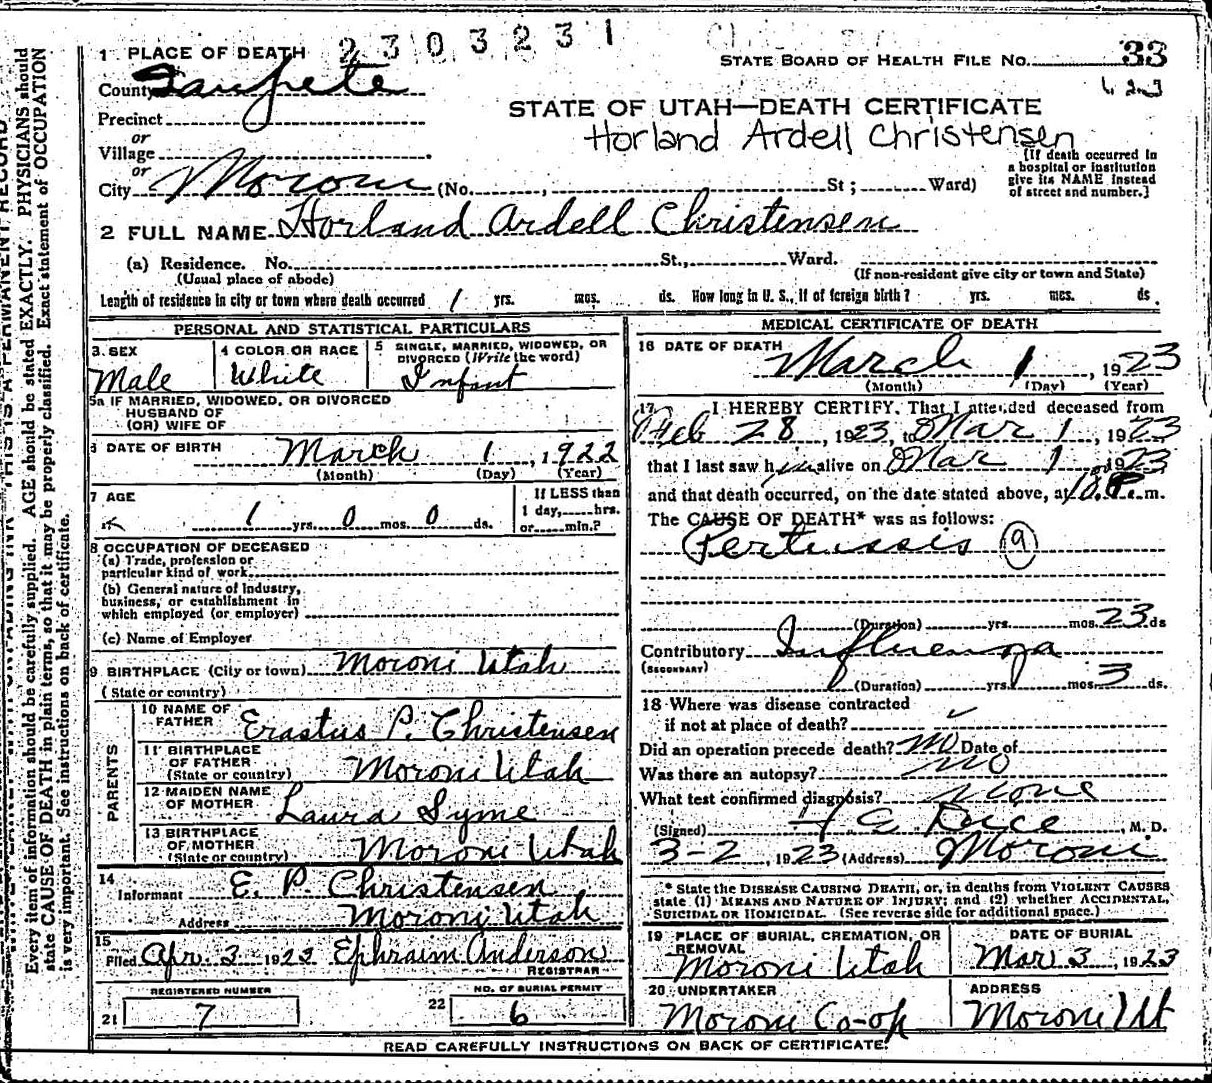 2303231
1 PLACE OF DEATH
STATE BOARD OF HEALTH FILE No. 33
County Sanpete
423
STATE OF UTAH—DEATH CERTIFICATE
Precinct
Horland Ardell Christensen
or
Village
or
City Moroni (No. , St ; Ward)
[If death occurred in
a hospital or institution
give its NAME instead
of street and number.]
2 FULL NAME Horland Ardell Christensen
(a) Residence. No. St., Ward.
(Usual place of abode) (If non-resident give city or town and State)
Length of residence in city or town where death occurred 1 yrs. mos. ds. How long in U. S., if of foreign birth? yrs. mos. ds.
PERSONAL AND STATISTICAL PARTICULARS
3. SEX
Male
4 COLOR OR RACE
White
5 SINGLE, MARRIED, WIDOWED, OR
DIVORCED (Write the word)
Infant
5a IF MARRIED, WIDOWED, OR DIVORCED
HUSBAND OF
(OR) WIFE OF
6 DATE OF BIRTH March 1, 1922
(Month) (Day) (Year)
7 AGE
1 yrs. 0 mos. 0 ds.
If LESS than
1 day, hrs.
or min.?
8 OCCUPATION OF DECEASED
(a) Trade, profession or
particular kind of work
(b) General nature of Industry,
business, or establishment in
which employed (or employer)
(c) Name of Employer
9 BIRTHPLACE (City or town) Moroni Utah
(State or country)
PARENTS
10 NAME OF
FATHER Erastus P. Christensen
11 BIRTHPLACE
OF FATHER
(State or country) Moroni Utah
12 MAIDEN NAME
OF MOTHER Laura Syme
13 BIRTHPLACE
OF MOTHER
(State or country) Moroni Utah
14
Informant E. P. Christensen
Address Moroni Utah
15
Filed Apr. 3, 1923 Ephraim Anderson
REGISTRAR
REGISTERED NUMBER
21 7
NO. OF BURIAL PERMIT
22 6
MEDICAL CERTIFICATE OF DEATH
16 DATE OF DEATH
March 1, 1923
(Month) (Day) (Year)
17 I HEREBY CERTIFY, That I attended deceased from
Feb 28, 1923, to Mar 1, 1923
that I last saw him alive on Mar 1, 1923
and that death occurred, on the date stated above, at m.
The CAUSE OF DEATH* was as follows:
Pertussis (9)
(Duration) yrs. mos. 23 ds
Contributory Influenza
(SECONDARY)
(Duration) yrs. mos. 3 ds.
18 Where was disease contracted
if not at place of death? ✓
Did an operation precede death? No Date of
Was there an autopsy? No
What test confirmed diagnosis? None
(Signed) , M. D.
3-2, 1923 (Address) Moroni
* State the DISEASE CAUSING DEATH, or, in deaths from VIOLENT CAUSES
state (1) MEANS AND NATURE OF INJURY; and (2) whether ACCIDENTAL,
SUICIDAL OR HOMICIDAL. (See reverse side for additional space.)
19 PLACE OF BURIAL, CREMATION, OR
REMOVAL
Moroni Utah
DATE OF BURIAL
Mar 3, 1923
20 UNDERTAKER
Moroni Co-op
ADDRESS
Moroni Ut
READ CAREFULLY INSTRUCTIONS ON BACK OF CERTIFICATE.
Every item of information should be carefully supplied. AGE should be stated EXACTLY. PHYSICIANS should
state CAUSE OF DEATH in plain terms, so that it may be properly classified. Exact statement of OCCUPATION
is very important. See instructions on back of certificate.